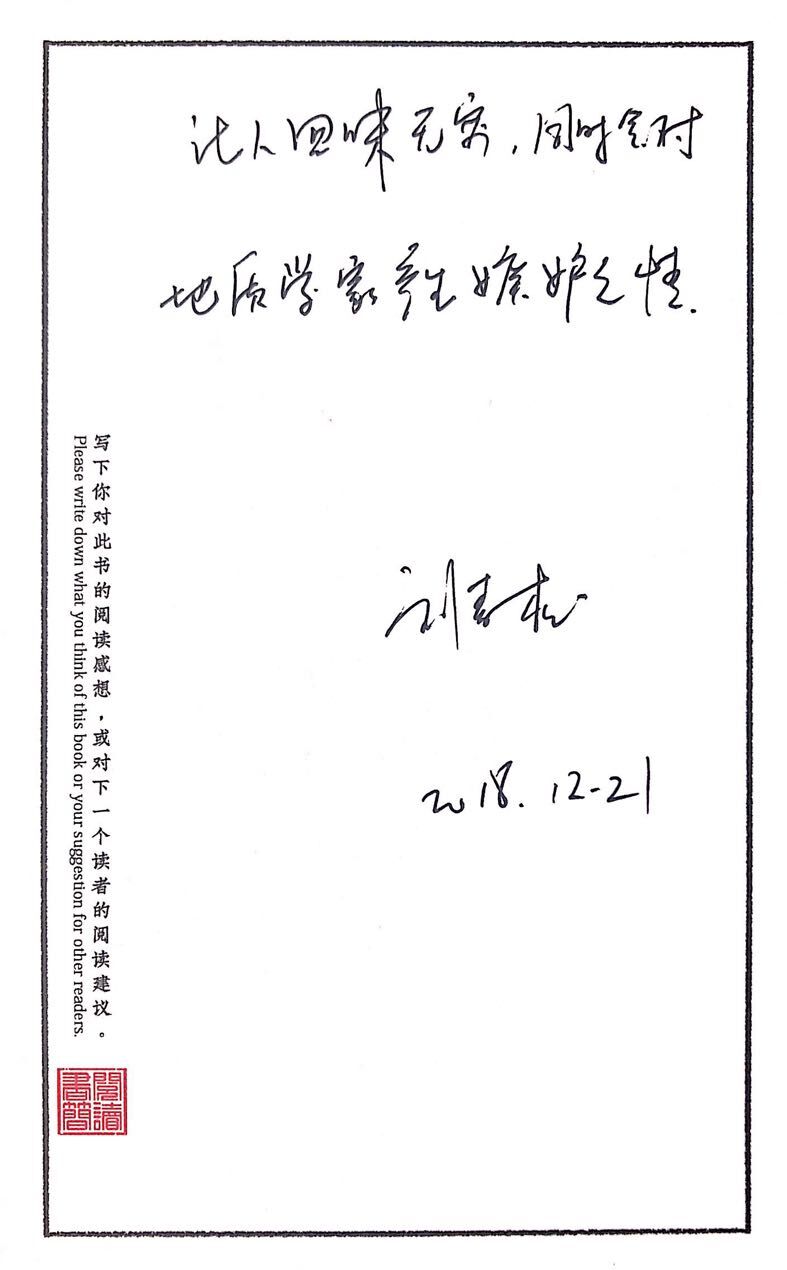 让人回味无穷，同时会对
地质学家产生嫉妒之情.
刘青松
2018.12-21
写下你对此书的阅读感想，或对下一个读者的阅读建议。
Please write down what you think of this book or your suggestion for other readers.
閱讀
書簡